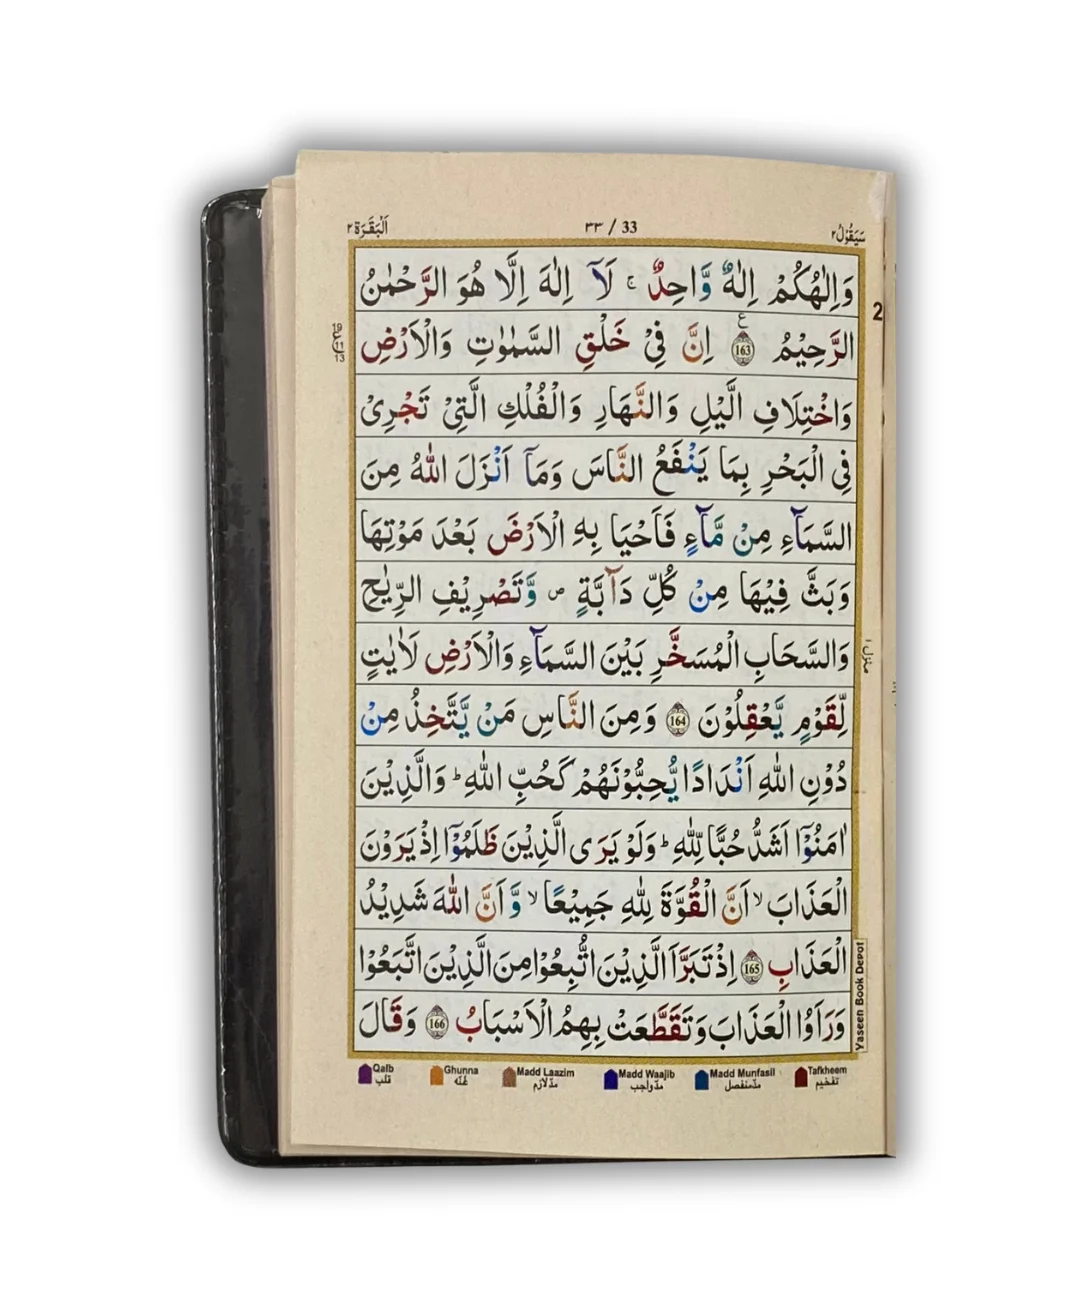 سَيَقُوْلُ ٢
٣٣ / 33
اَلْبَقَرَة ٢
وَاِلٰهُكُمْ اِلٰهٌ وَّاحِدٌ ۚ لَآ اِلٰهَ اِلَّا هُوَ الرَّحْمٰنُ
الرَّحِيْمُ ع 163 اِنَّ فِيْ خَلْقِ السَّمٰوٰتِ وَالْاَرْضِ
وَاخْتِلَافِ الَّيْلِ وَالنَّهَارِ وَالْفُلْكِ الَّتِيْ تَجْرِيْ
فِي الْبَحْرِ بِمَا يَنْفَعُ النَّاسَ وَمَآ اَنْزَلَ اللّٰهُ مِنَ
السَّمَآءِ مِنْ مَّآءٍ فَاَحْيَا بِهِ الْاَرْضَ بَعْدَ مَوْتِهَا
وَبَثَّ فِيْهَا مِنْ كُلِّ دَآبَّةٍ ص وَّتَصْرِيْفِ الرِّيٰحِ
وَالسَّحَابِ الْمُسَخَّرِ بَيْنَ السَّمَآءِ وَالْاَرْضِ لَاٰيٰتٍ
لِّقَوْمٍ يَّعْقِلُوْنَ 164 وَمِنَ النَّاسِ مَنْ يَّتَّخِذُ مِنْ
دُوْنِ اللّٰهِ اَنْدَادًا يُّحِبُّوْنَهُمْ كَحُبِّ اللّٰهِ ؕ وَالَّذِيْنَ
اٰمَنُوْٓا اَشَدُّ حُبًّا لِّلّٰهِ ؕ وَلَوْ يَرَى الَّذِيْنَ ظَلَمُوْٓا اِذْ يَرَوْنَ
الْعَذَابَ ۙ اَنَّ الْقُوَّةَ لِلّٰهِ جَمِيْعًا ۙ وَّاَنَّ اللّٰهَ شَدِيْدُ
الْعَذَابِ 165 اِذْ تَبَرَّاَ الَّذِيْنَ اتُّبِعُوْا مِنَ الَّذِيْنَ اتَّبَعُوْا
وَرَاَوُا الْعَذَابَ وَتَقَطَّعَتْ بِهِمُ الْاَسْبَابُ 166 وَقَالَ
19
11
13
2
منزل ١
Yaseen Book Depot
Qalb Ghunna Madd Laazim Madd Waajib Madd Munfasil Tafkheem
قلب غُنّه مدّلازم مدّواجب مدّمنفصل تفخیم